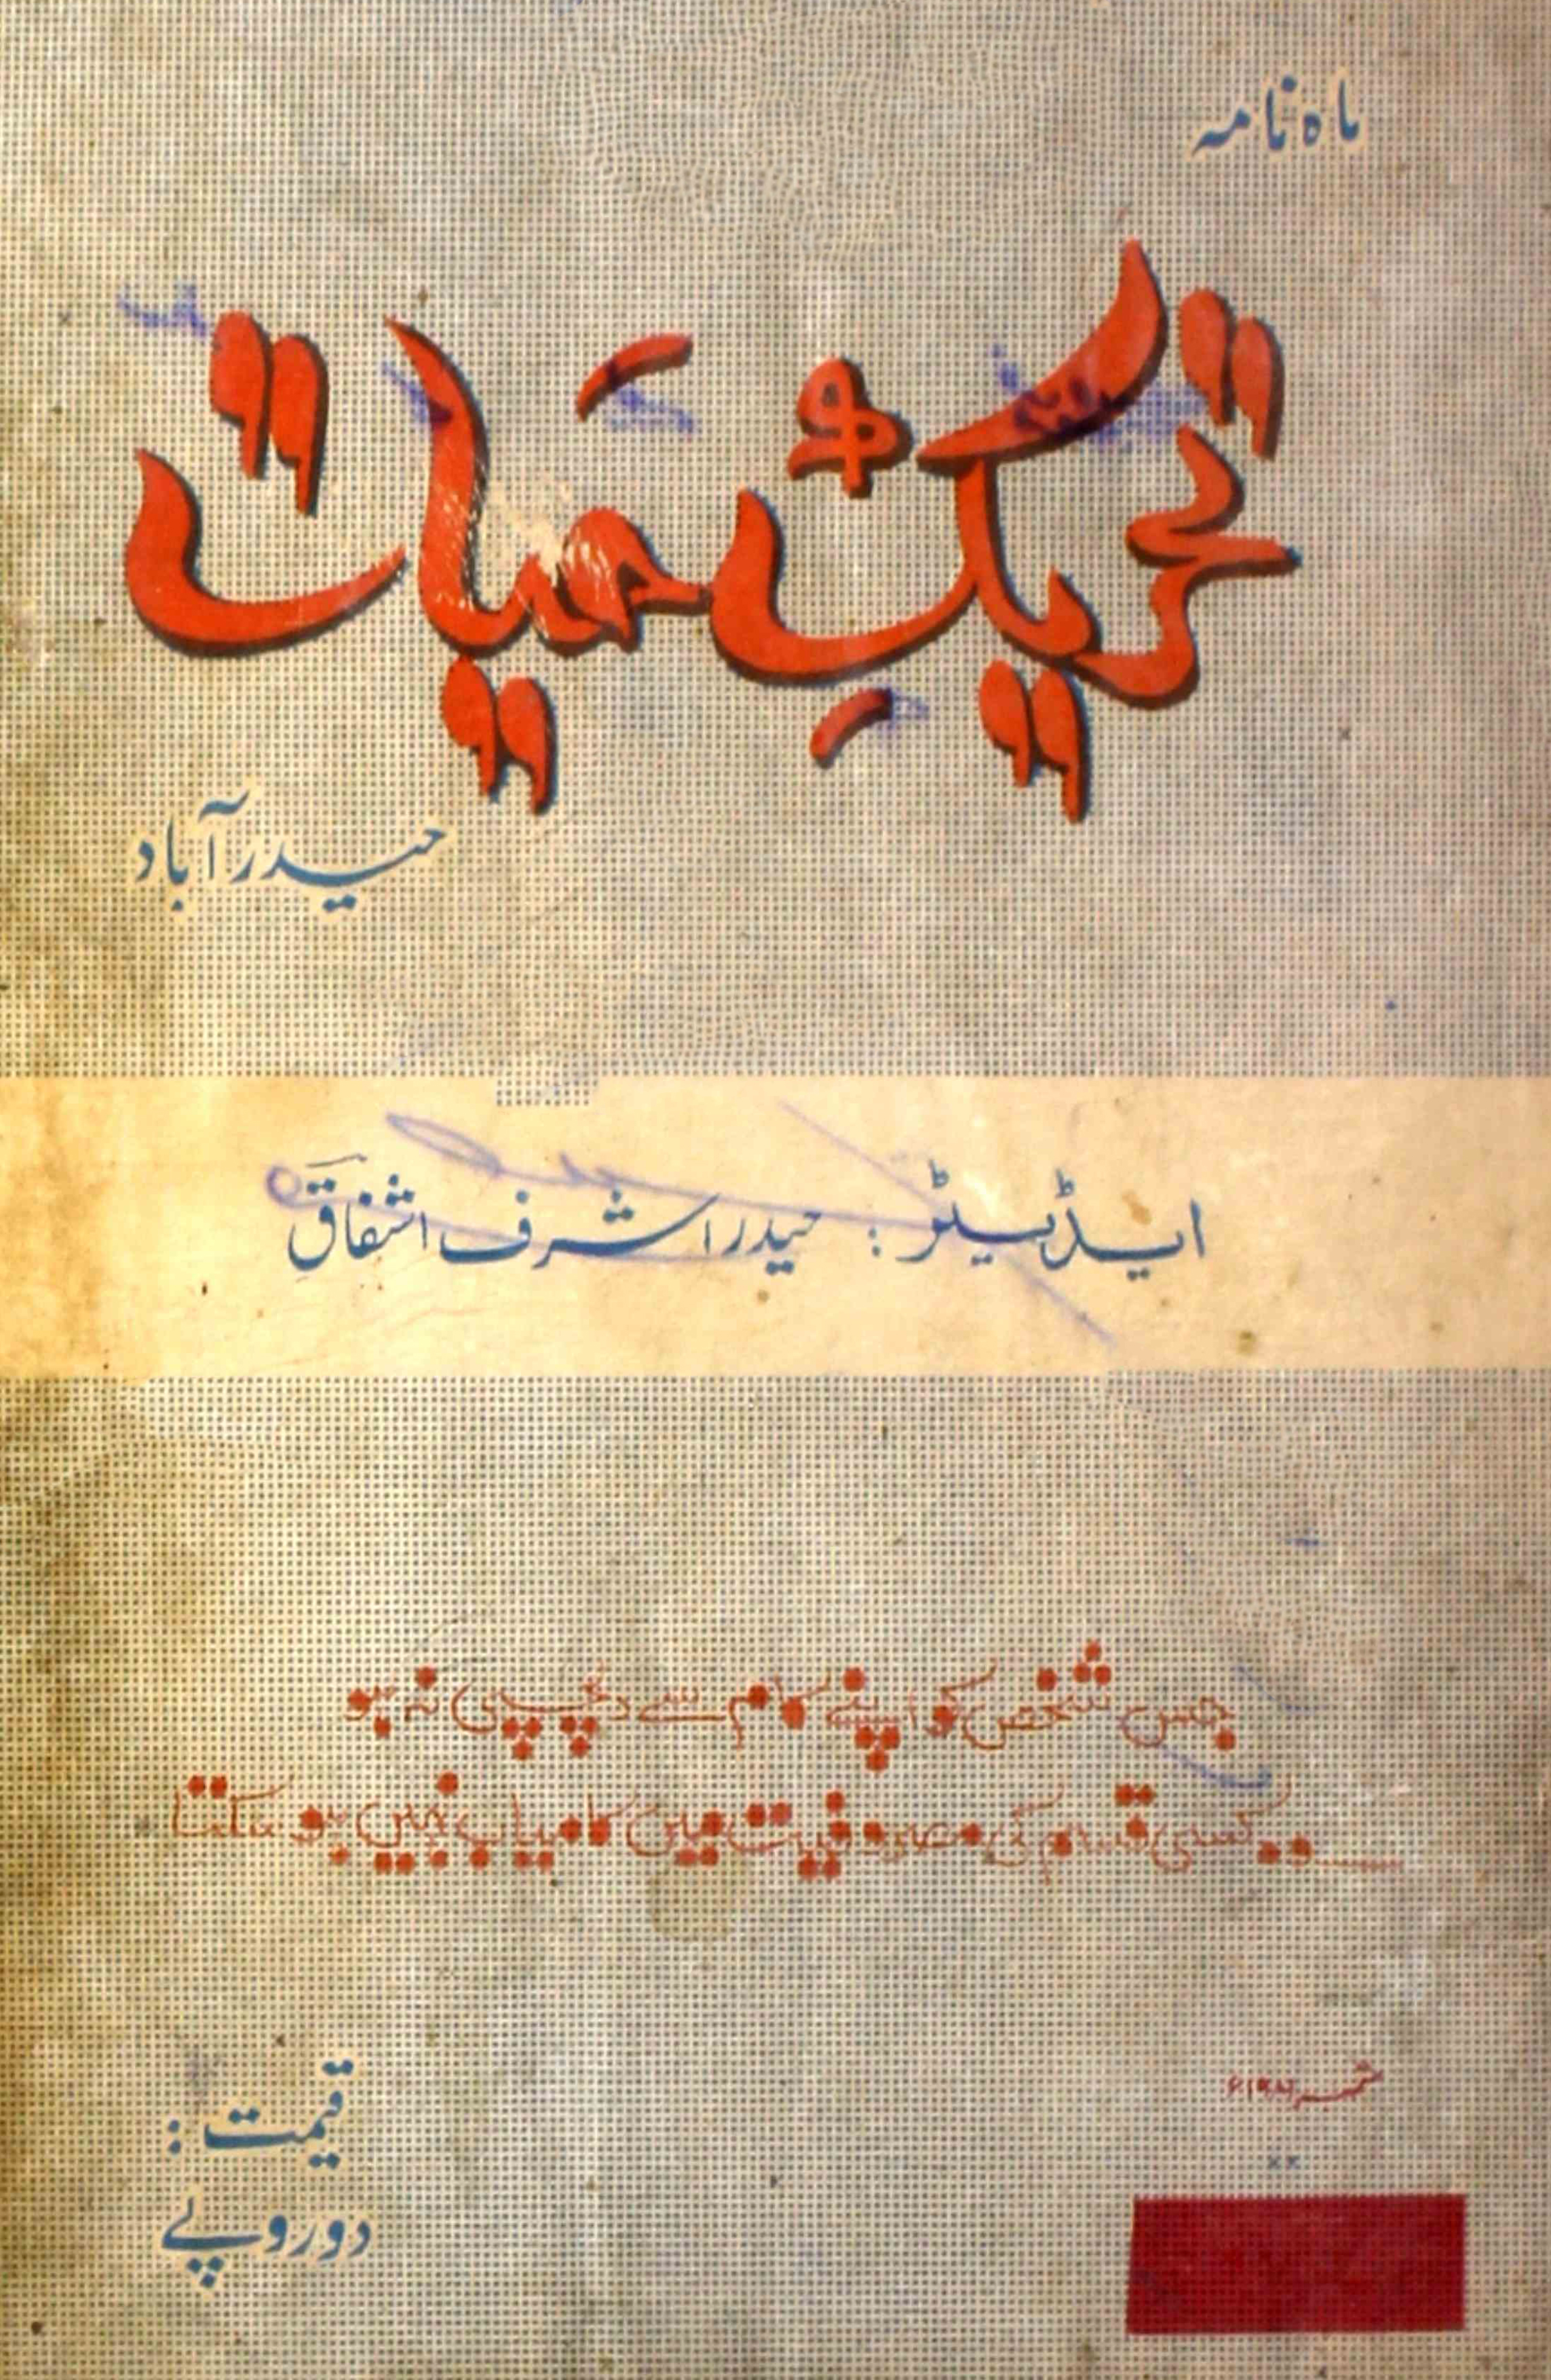 ماہ نامہ
تحریکِ حیات
حیدرآباد
ایڈیٹر : حیدر اشرف اشفاق
جس شخص کو اپنے کام سے دلچسپی نہ ہو
وہ کسی قسم کی مصروفیت میں کامیاب نہیں ہو سکتا
ستمبر
قیمت :
دو روپے